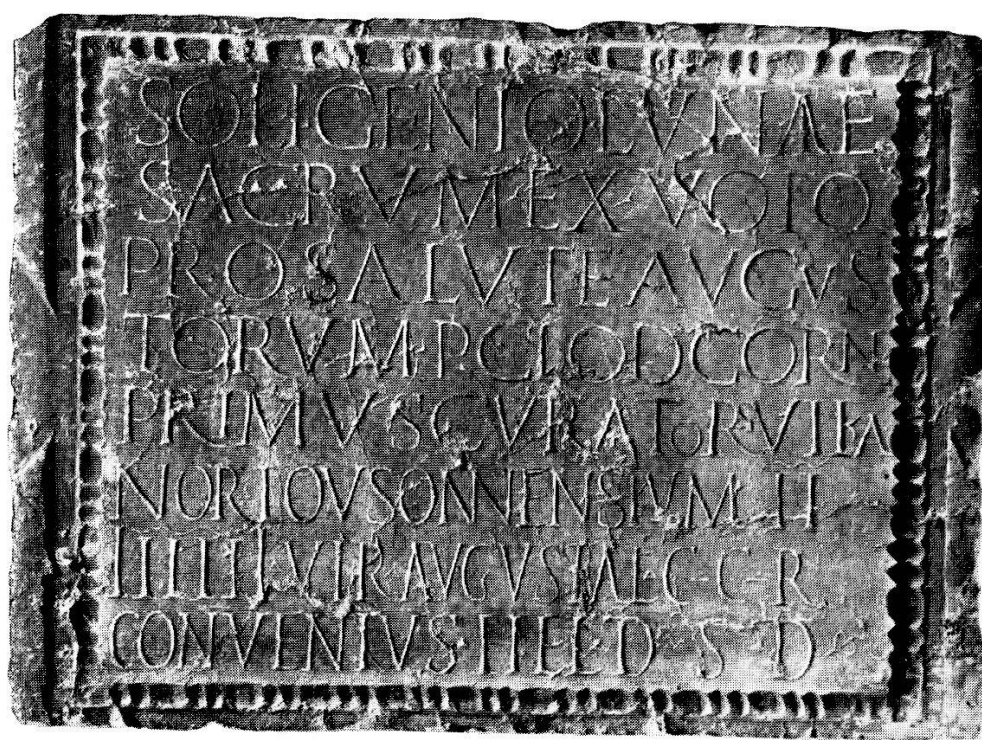 SOLI GENIO LVNAE
SACRVM EX VOTO
PRO SALVTE AVGVS
TORVM P CLOD CORN
PRIMVS CVRATOR VIKA
NOR LOVSONNENSIVM II
IIIIII VIR AVGVSTAL C C R
CONVENTVS HEL D S D